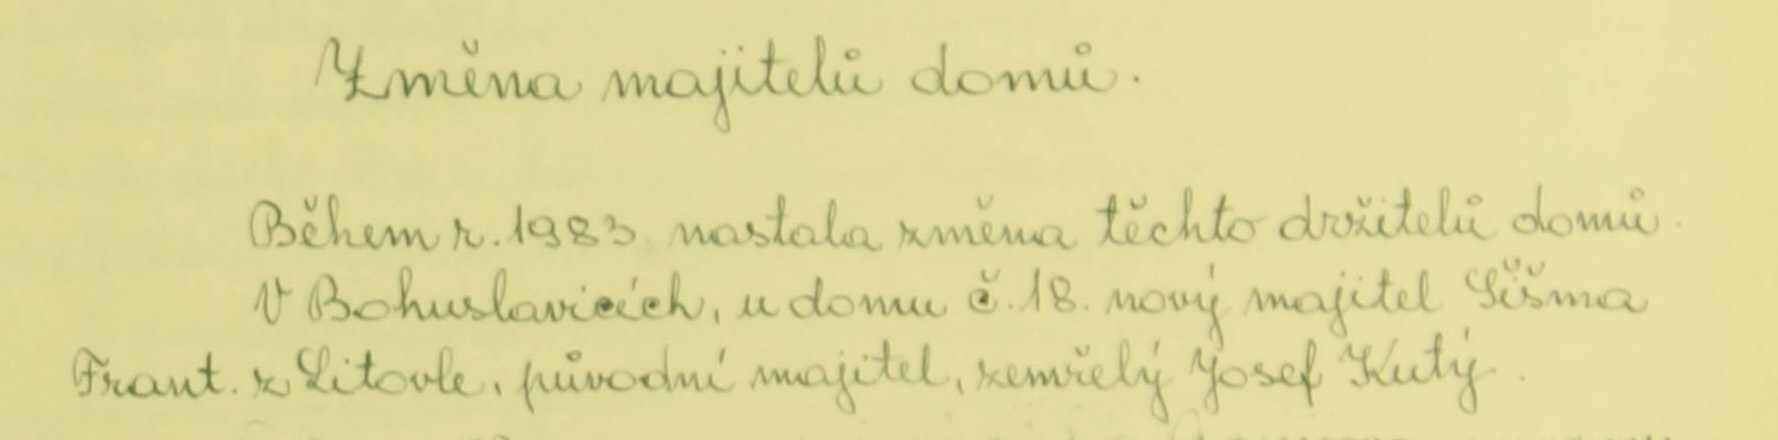 Změna majitelů domů.
Během r. 1983 nastala změna těchto držitelů domů.
V Bohuslavicích, u domu č. 18. nový majitel Šišma
Frant. z Litovle, původní majitel, zemřelý Josef Kutý.